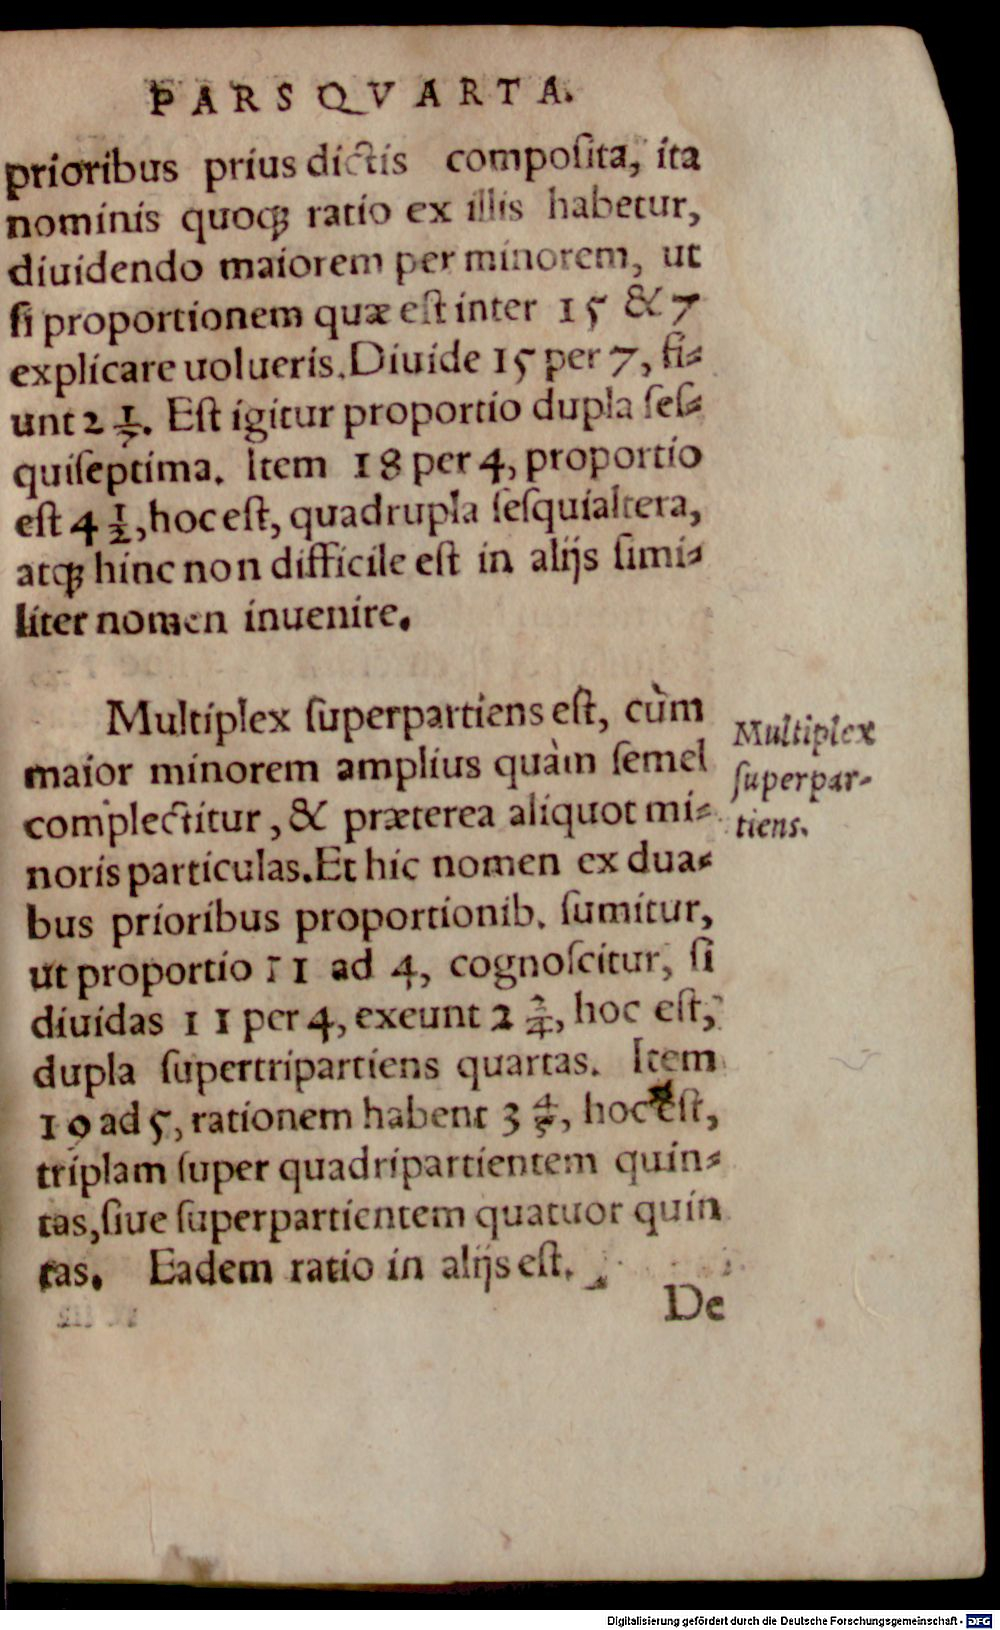 PARS QVARTA.
prioribus prius dictis compoſita, ita
nominis quoqꝫ ratio ex illis habetur,
diuidendo maiorem per minorem, ut
ſi proportionem quæ eſt inter 15 & 7
explicare uolueris. Diuide 15 per 7, fi⸗
unt 2 1/7. Eſt igitur proportio dupla ſeſ⸗
quiſeptima. Item 18 per 4, proportio
eſt 4 1/2, hoc eſt, quadrupla ſeſquialtera,
atqꝫ hinc non difficile eſt in alijs ſimi⸗
liter nomen inuenire.
Multiplex ſuperpartiens eſt, cùm
maior minorem amplius quàm ſemel
complectitur, & præterea aliquot mi⸗
noris particulas. Et hic nomen ex dua⸗
bus prioribus proportionib. ſumitur,
ut proportio 11 ad 4, cognoſcitur, ſi
diuidas 11 per 4, exeunt 2 3/4, hoc eſt,
dupla ſupertripartiens quartas. Item
19 ad 5, rationem habent 3 4/5, hoc eſt,
triplam ſuper quadripartientem quin⸗
tas, ſiue ſuperpartientem quatuor quin
tas. Eadem ratio in alijs eſt.
De
Multiplex
ſuperpar-
tiens.
Digitalisierung gefördert durch die Deutsche Forschungsgemeinschaft - DFG